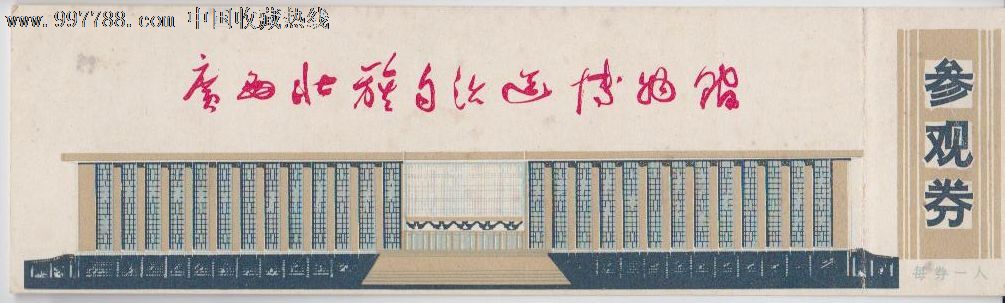 www.997788.com 中国收藏热线
廣西壮族自治区博物館
参观券
每券一人